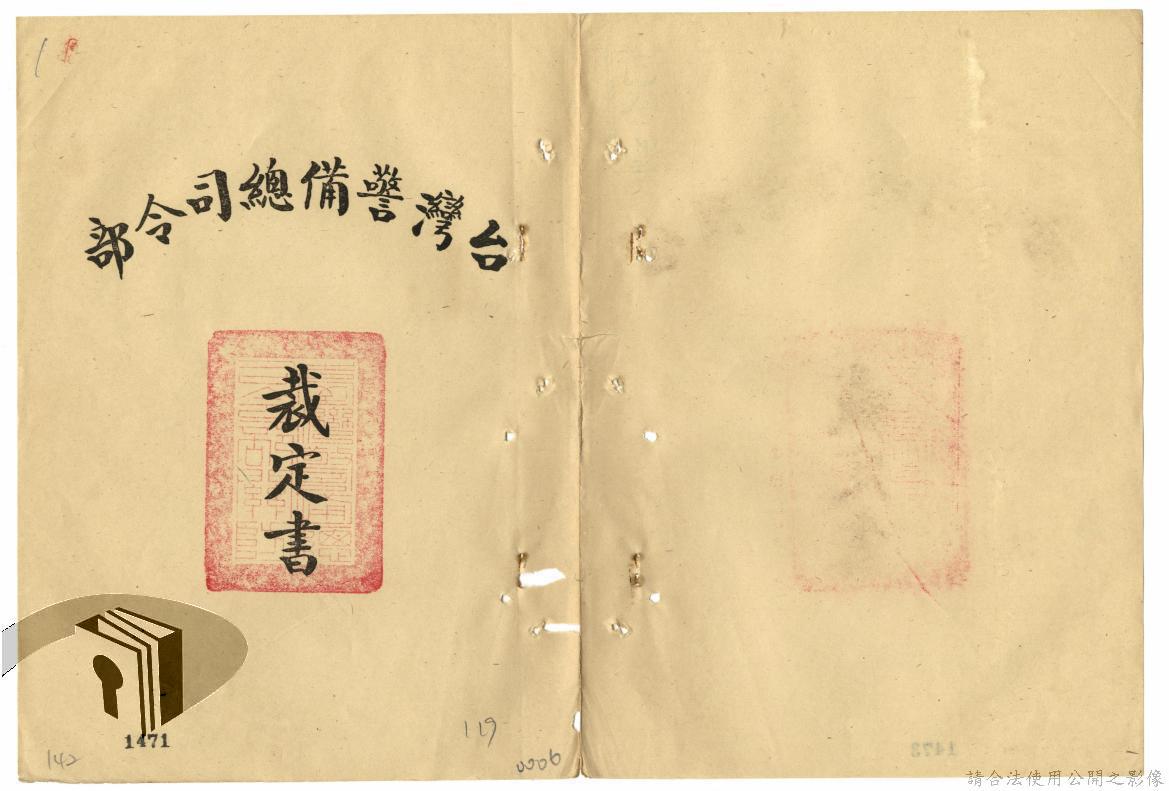 台灣警備總司令部
裁定書
1471
142
119
0006
1473
請合法使用公開之影像